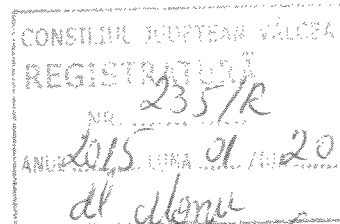 CONSILIUL JUDEȚEAN VÂLCEA
REGISTRATURĂ
NR. 235/R
ANUL 2015 LUNA 01 /ZIUA 20
dl